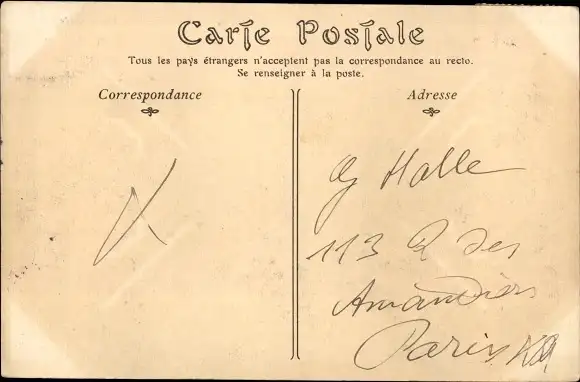 Carte Postale
Tous les pays étrangers n'acceptent pas la correspondance au recto.
Se renseigner à la poste.
Correspondance
Adresse
Halle
113 R des
Amandiers
Paris